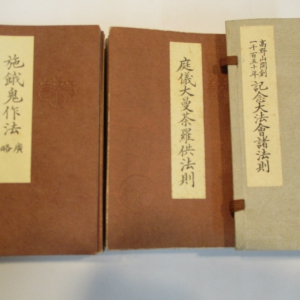 高野山開創
一千百五十年
記念大法會諸法則
庭儀大曼荼羅供法則
施餓鬼作法
廣
略